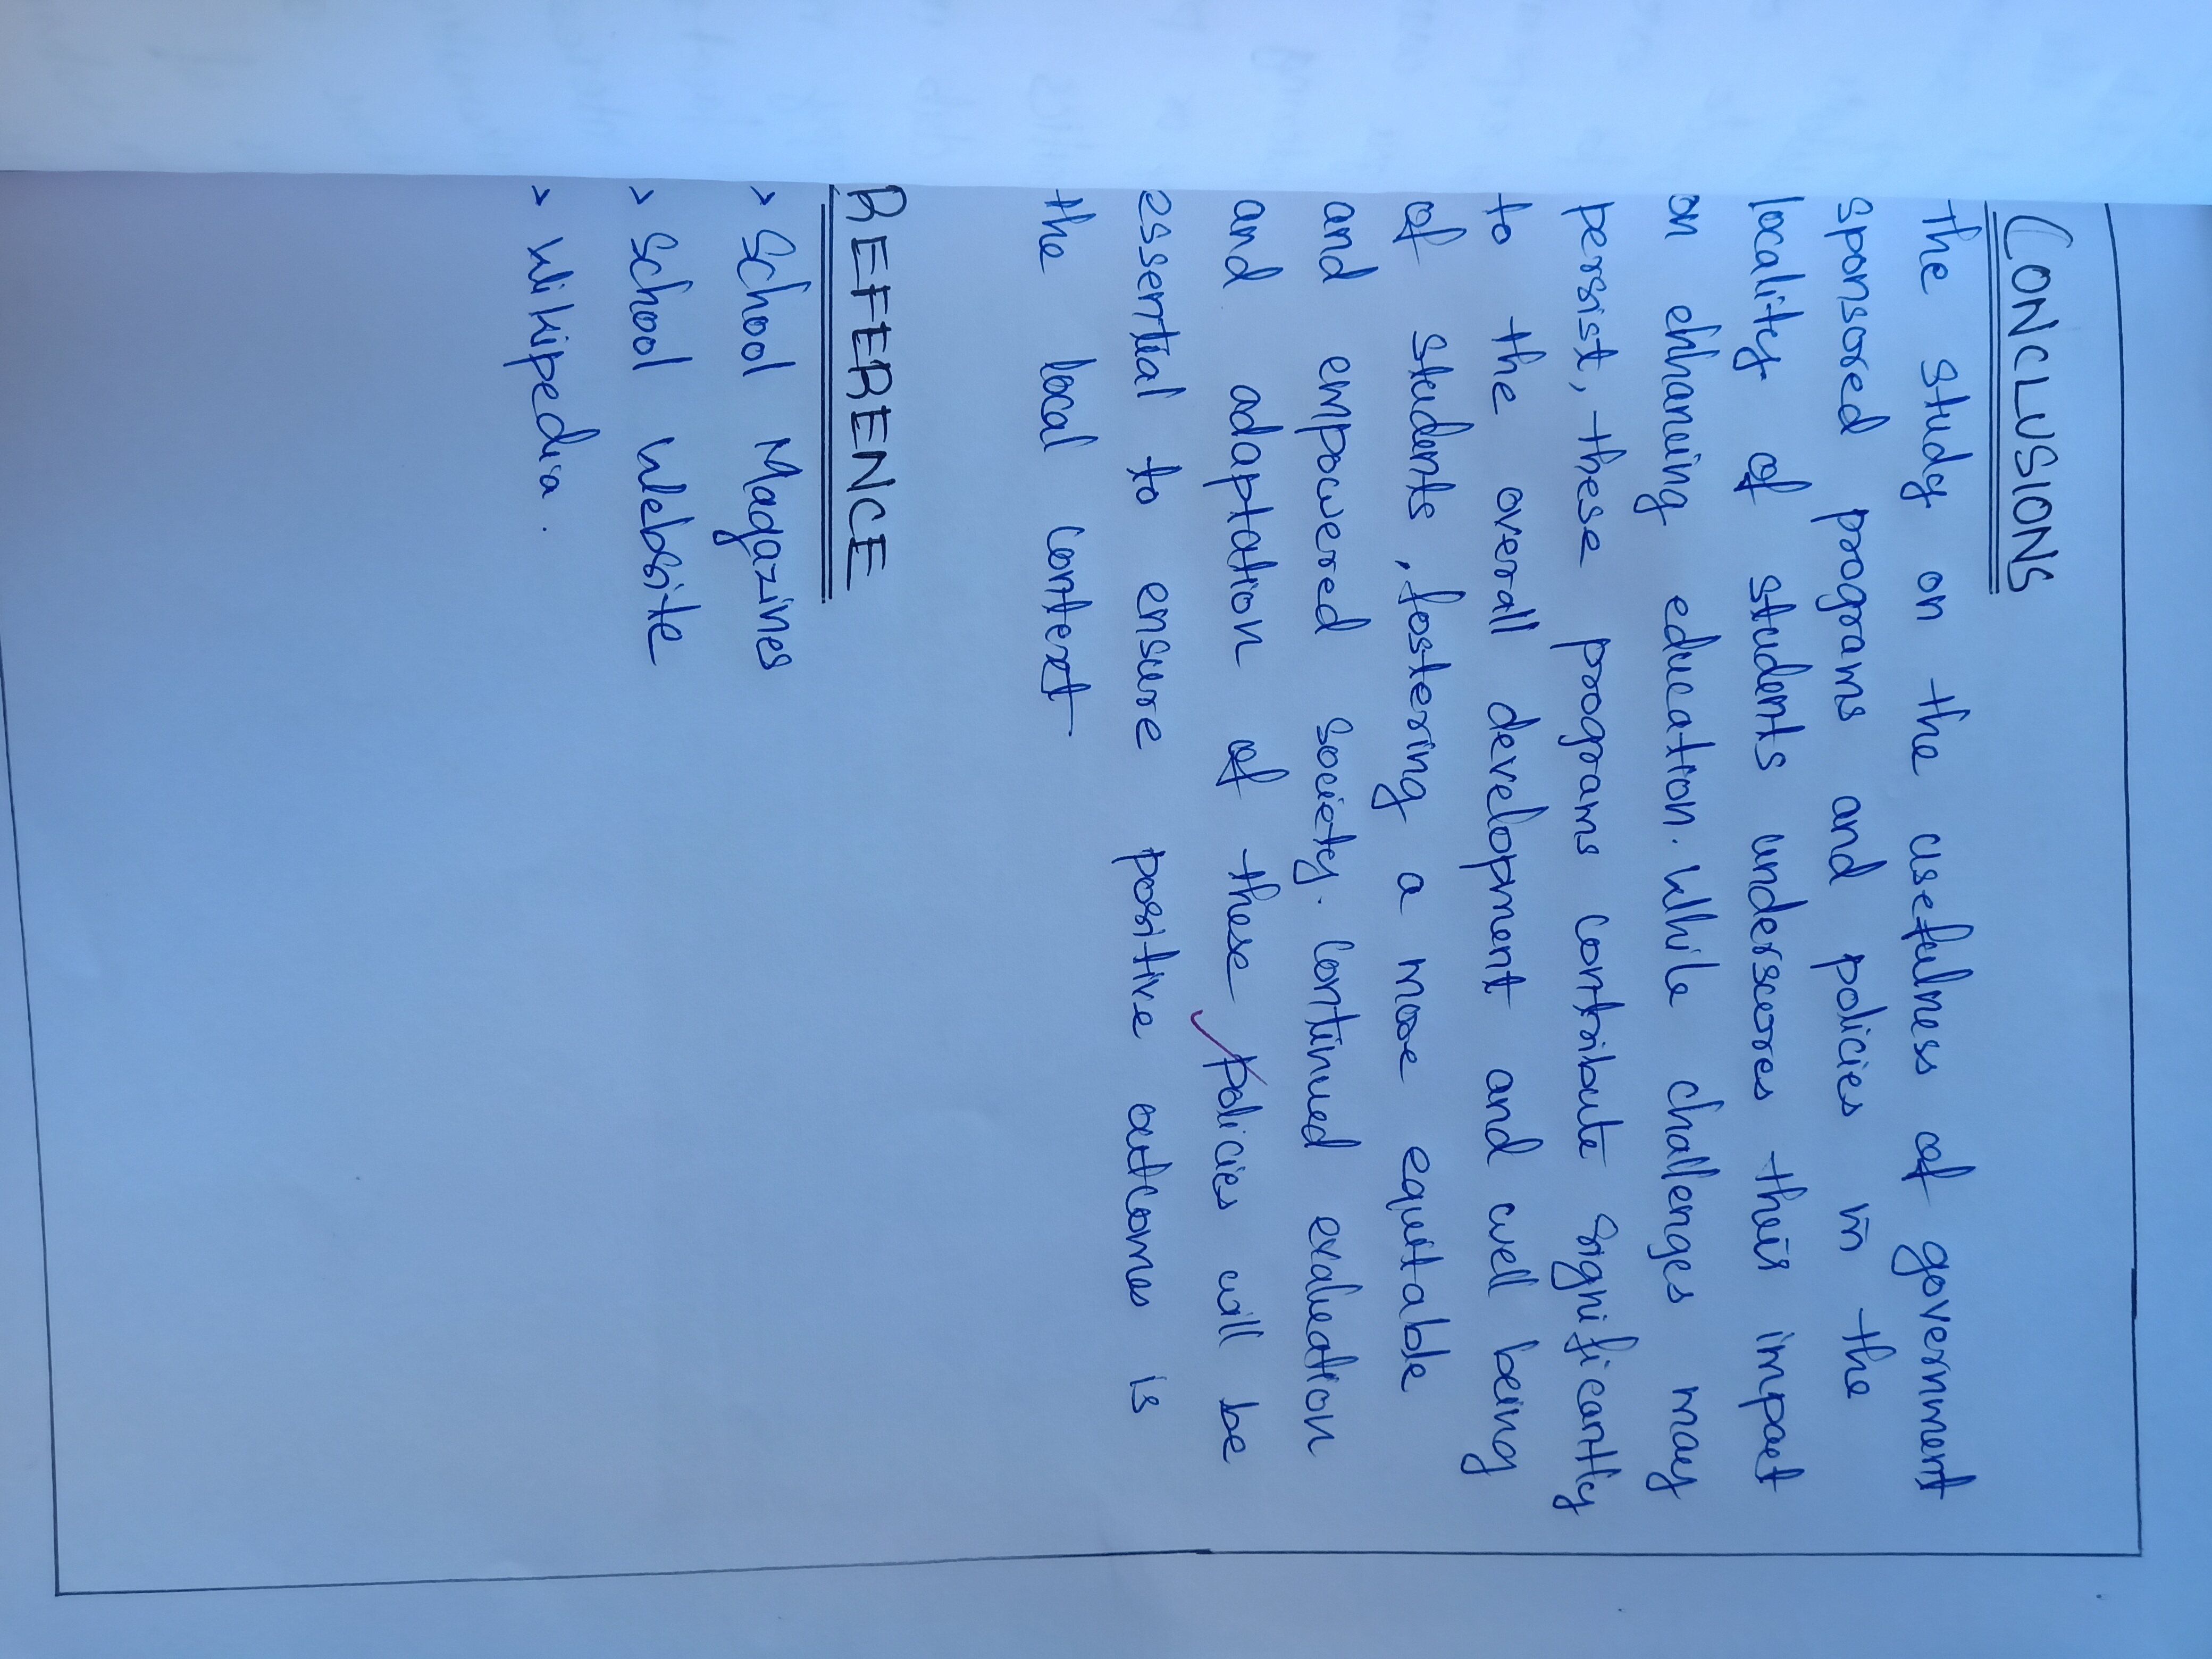 CONCLUSIONS
the study on the usefulness of government
sponsored programs and policies in the
locality of students underscores their impact
on enhancing education. While challenges may
persist, these programs contribute significantly
to the overall development and well being
of students, fostering a more equitable
and empowered society. Continued evaluation
and adaptation of these policies will be
essential to ensure positive outcomes is
the local context
REFERENCE
> School Magazines
> School Website
> Wikipedia.